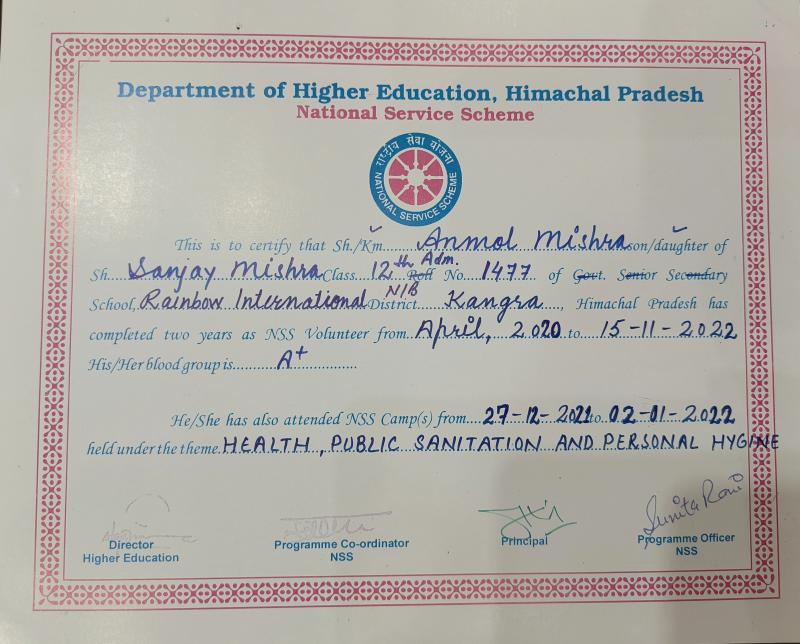 Department of Higher Education, Himachal Pradesh
National Service Scheme
राष्ट्रीय सेवा योजना
NATIONAL SERVICE SCHEME
This is to certify that Sh./Km. Anmol Mishra son/daughter of
Sh. Sanjay Mishra Class 12th Adm. Roll No. 1477 of Govt. Senior Secondary
School, Rainbow International N/B District Kangra, Himachal Pradesh has
completed two years as NSS Volunteer from April, 2020 to 15-11-2022
His/Her blood group is A+
He/She has also attended NSS Camp(s) from 27-12-2021 to 02-01-2022
held under the theme HEALTH, PUBLIC SANITATION AND PERSONAL HYGINE
Sunita Rani
Director
Higher Education
Programme Co-ordinator
NSS
Principal
Programme Officer
NSS